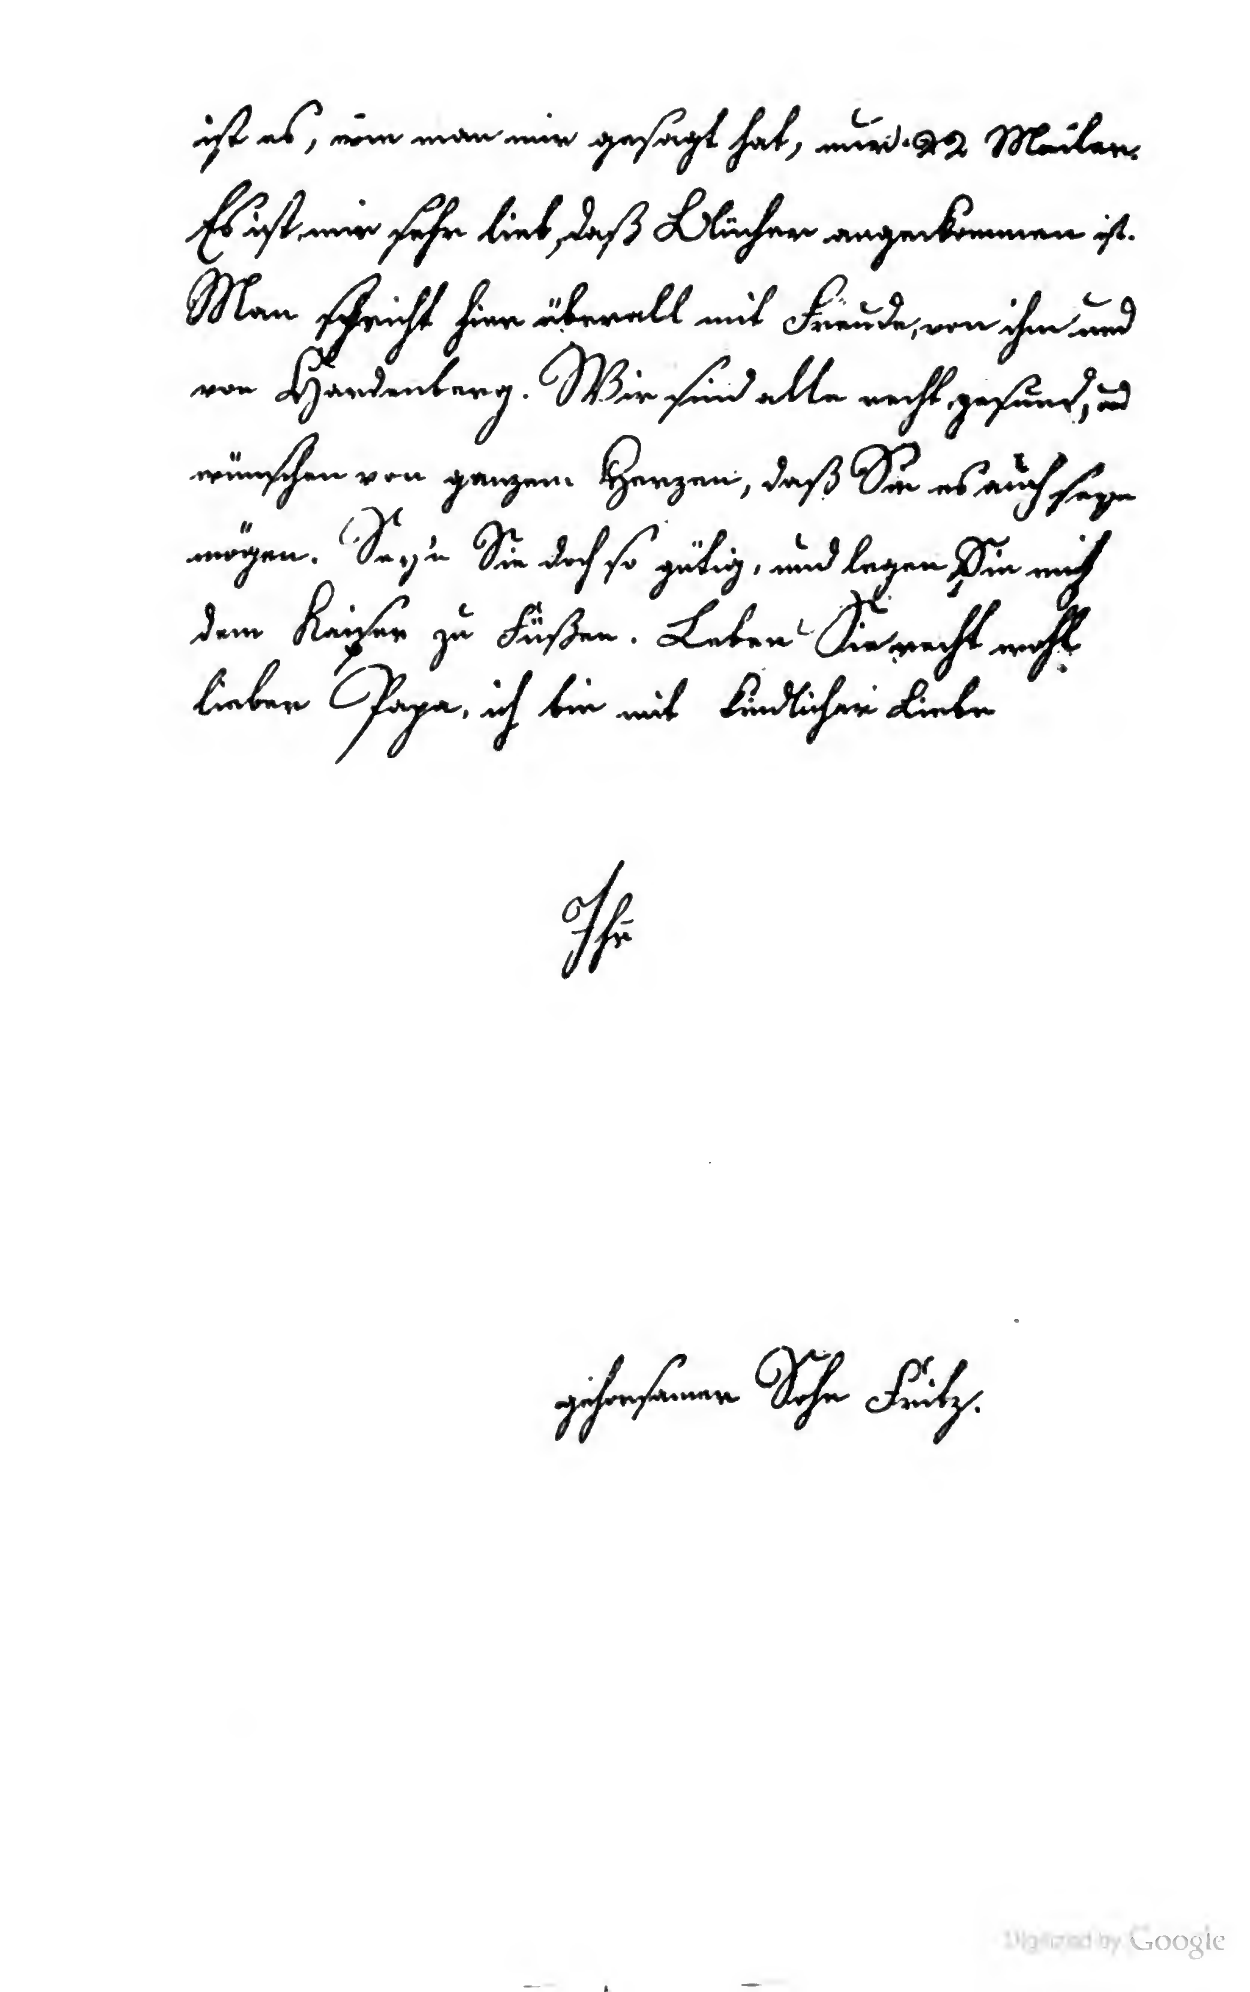 ist es, wie man mir gesagt hat, nur 22 Meilen.
Es ist mir sehr lieb, daß Blücher angekommen ist.
Man spricht hier überall mit Freude, von ihm und
von Hardenberg. Wir sind alle recht gesund, und
wünschen von ganzem Herzen, daß Sie es auch seyn
mögen. Seyn Sie doch so gütig, und legen Sie mich
dem Kaiser zu Füßen. Leben Sie recht wohl
lieber Papa, ich bin mit kindlicher Liebe
Ihr
gehorsamer Sohn Fritz.
Digitized by Google